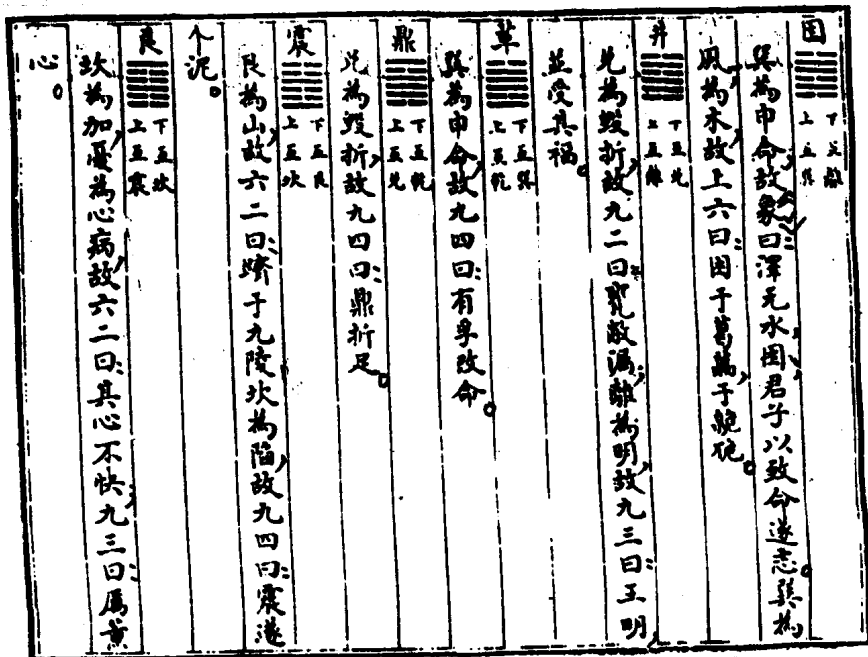 困 下互離 上互巽
巽為申命故象曰澤无水困君子以致命遂志。巽為
風為木故上六曰困于葛藟于臲卼。
井 下互兌 上互離
兌為毀折故九二曰甕敝漏離為明故九三曰王明
並受其福。
革 下互巽 上互乾
巽為申命故九四曰有孚改命。
鼎 下互乾 上互兌
兌為毀折故九四曰鼎折足。
震 下互艮 上互坎
艮為山故六二曰躋于九陵坎為陷故九四曰震遂
个泥。
艮 下互坎 上互震
坎為加憂為心病故六二曰其心不快九三曰厲薰
心。